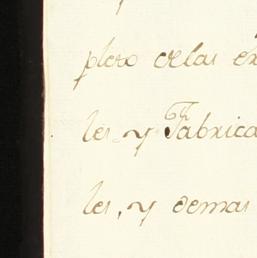 plero delas ex
les, y Fabrica
les, y demas